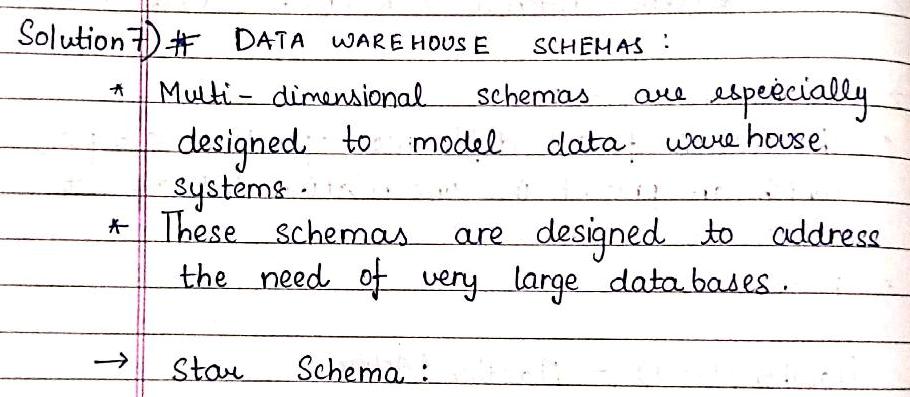 Solution 7) # DATA WAREHOUSE SCHEMAS :
* Multi - dimensional schemas are especially
designed to model data warehouse
systems.
* These schemas are designed to address
the need of very large databases.
→ Star Schema :